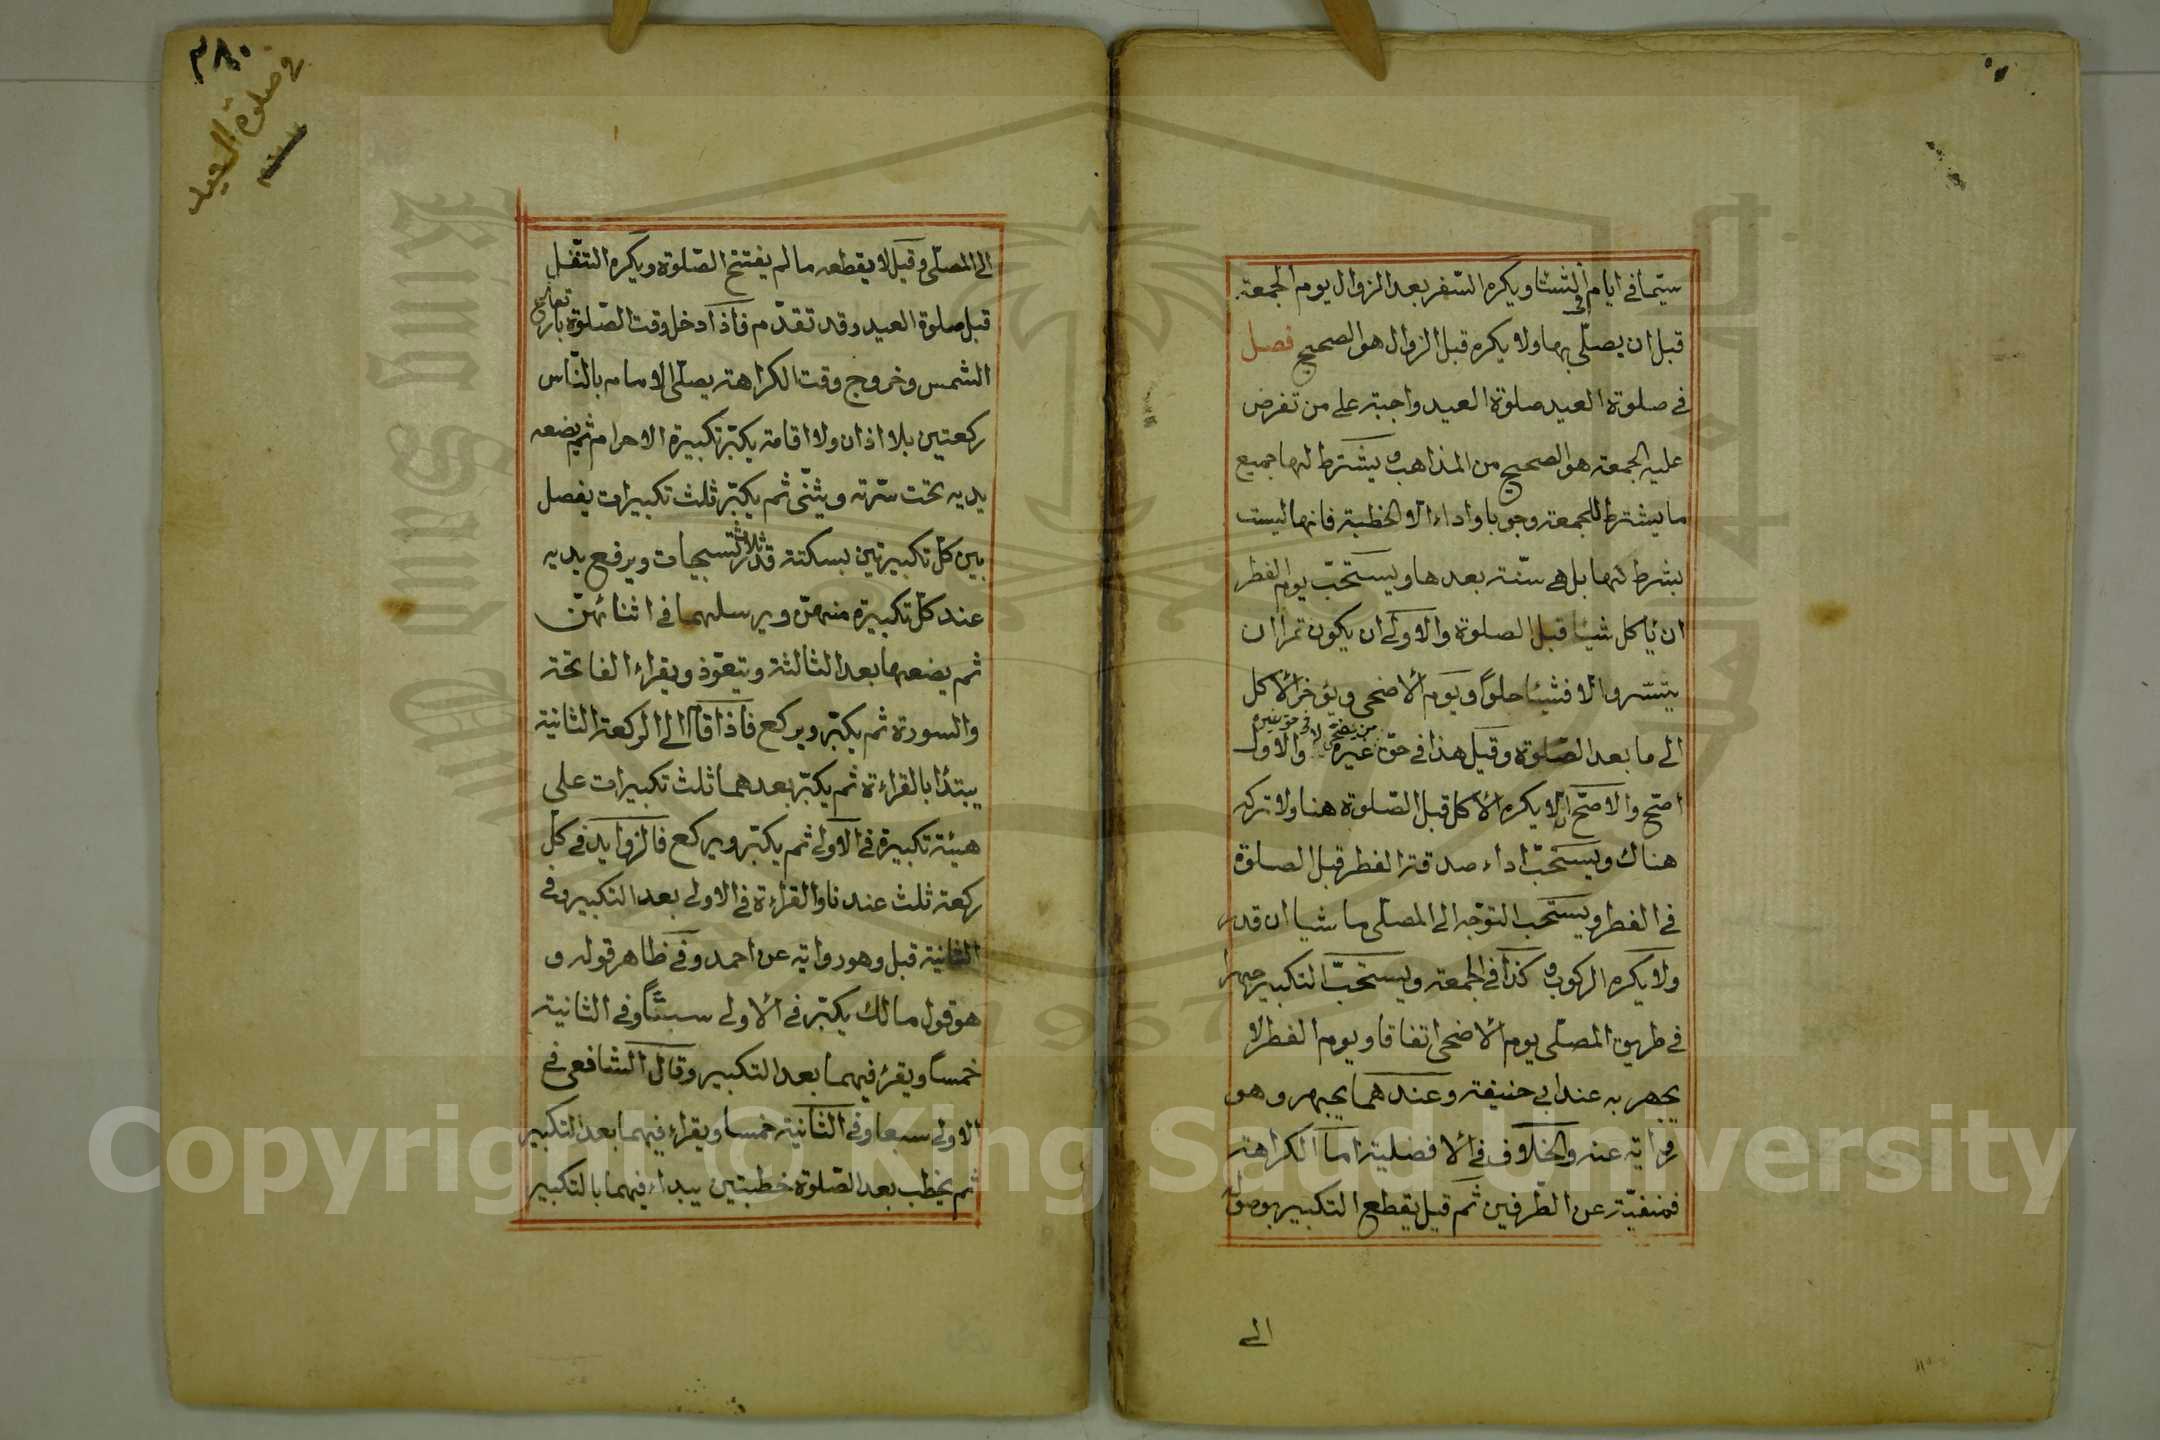 سيّما في ايام الشتا ويكره السّفر بعد الزوال يوم الجمعة
قبل ان يصلّى بها ولا يكره قبل الزوال هو الصحيح فصل
في صلوة العيد صلوة العيد واجبة على من تفرض
عليه الجمعة هو الصحيح من المذاهب ويشترط لها جميع
ما يشترط للجمعة وجوبا واداء الّا الخطبة فانها ليست
بشرط لها بل هي سنّة بعدها ويستحبّ يوم الفطر
ان يأكل شيئا قبل الصلوة والاولى ان يكون تمرا ان
يتيسّر والا فشيئا حلوا ويوم الاضحى ويؤخر الاكل
الى ما بعد الصّلوة وقيل هذا في حقّ من يضحّي لا في حق غيره والاول
اصحّ والاصحّ انه لا يكره الاكل قبل الصّلوة هنا ولا تركه
هناك ويستحبّ اداء صدقة الفطر قبل الصلوة
في الفطر ويستحب التوجّه الى المصلّى ماشيا ان قدر
ولا يكره الركوب وكذا في الجمعة ويستحبّ التكبير جهرا
في طريق المصلّى يوم الاضحى اتفاقا ويوم الفطر لا
يجهر به عند ابي حنيفة وعندهما يجهر وهو
رواية عنه والخلاف في الافضلية اما الكراهة
فمنفيّة عن الطّرفين ثم قيل يقطع التكبير بوصوله
الى
٣٨٠
في صلوة العيد
الى المصلّى وقيل لا يقطعه ما لم يفتتح الصّلوة ويكره التنفّل
قبل صلوة العيد وقد تقدّم فاذا دخل وقت الصّلوة بارتفاع
الشمس وخروج وقت الكراهة يصلّى الامام بالنّاس
ركعتين بلا اذان ولا اقامة يكبّر تكبيرة الاحرام ثم يضع
يديه تحت سرّته ويثنّى ثم يكبّر ثلث تكبيرات يفصل
بين كلّ تكبيرتين بسكتة قدر ثلاث تسبيحات ويرفع يديه
عند كلّ تكبيرة منهنّ ويرسلهما في اثنائهنّ
ثم يضعهما بعد الثالثة ويتعوّذ ويقراء الفاتحة
والسورة ثم يكبّر ويركع فاذا قام الى الركعة الثانية
يبتدأ بالقراءة ثم يكبّر بعدهما ثلث تكبيرات على
هيئة تكبيرة في الاولى ثم يكبّر ويركع فالزوايد في كلّ
ركعة ثلث عندنا والقراءة في الاولى بعد التكبير وفي
الثانية قبل وهو رواية عن احمد وفي ظاهر قوله و
هو قول مالك يكبّر في الاولى ستّا وفي الثانية
خمسا ويقرء فيهما بعد التكبير وقال الشافعي في
الاولى سبعا وفي الثانية خمسا ويقراء فيهما بعد التكبير
ثم يخطب بعد الصّلوة خطبتين يبداء فيهما بالتكبير
Copyright © King Saud University
King Saud University
1957